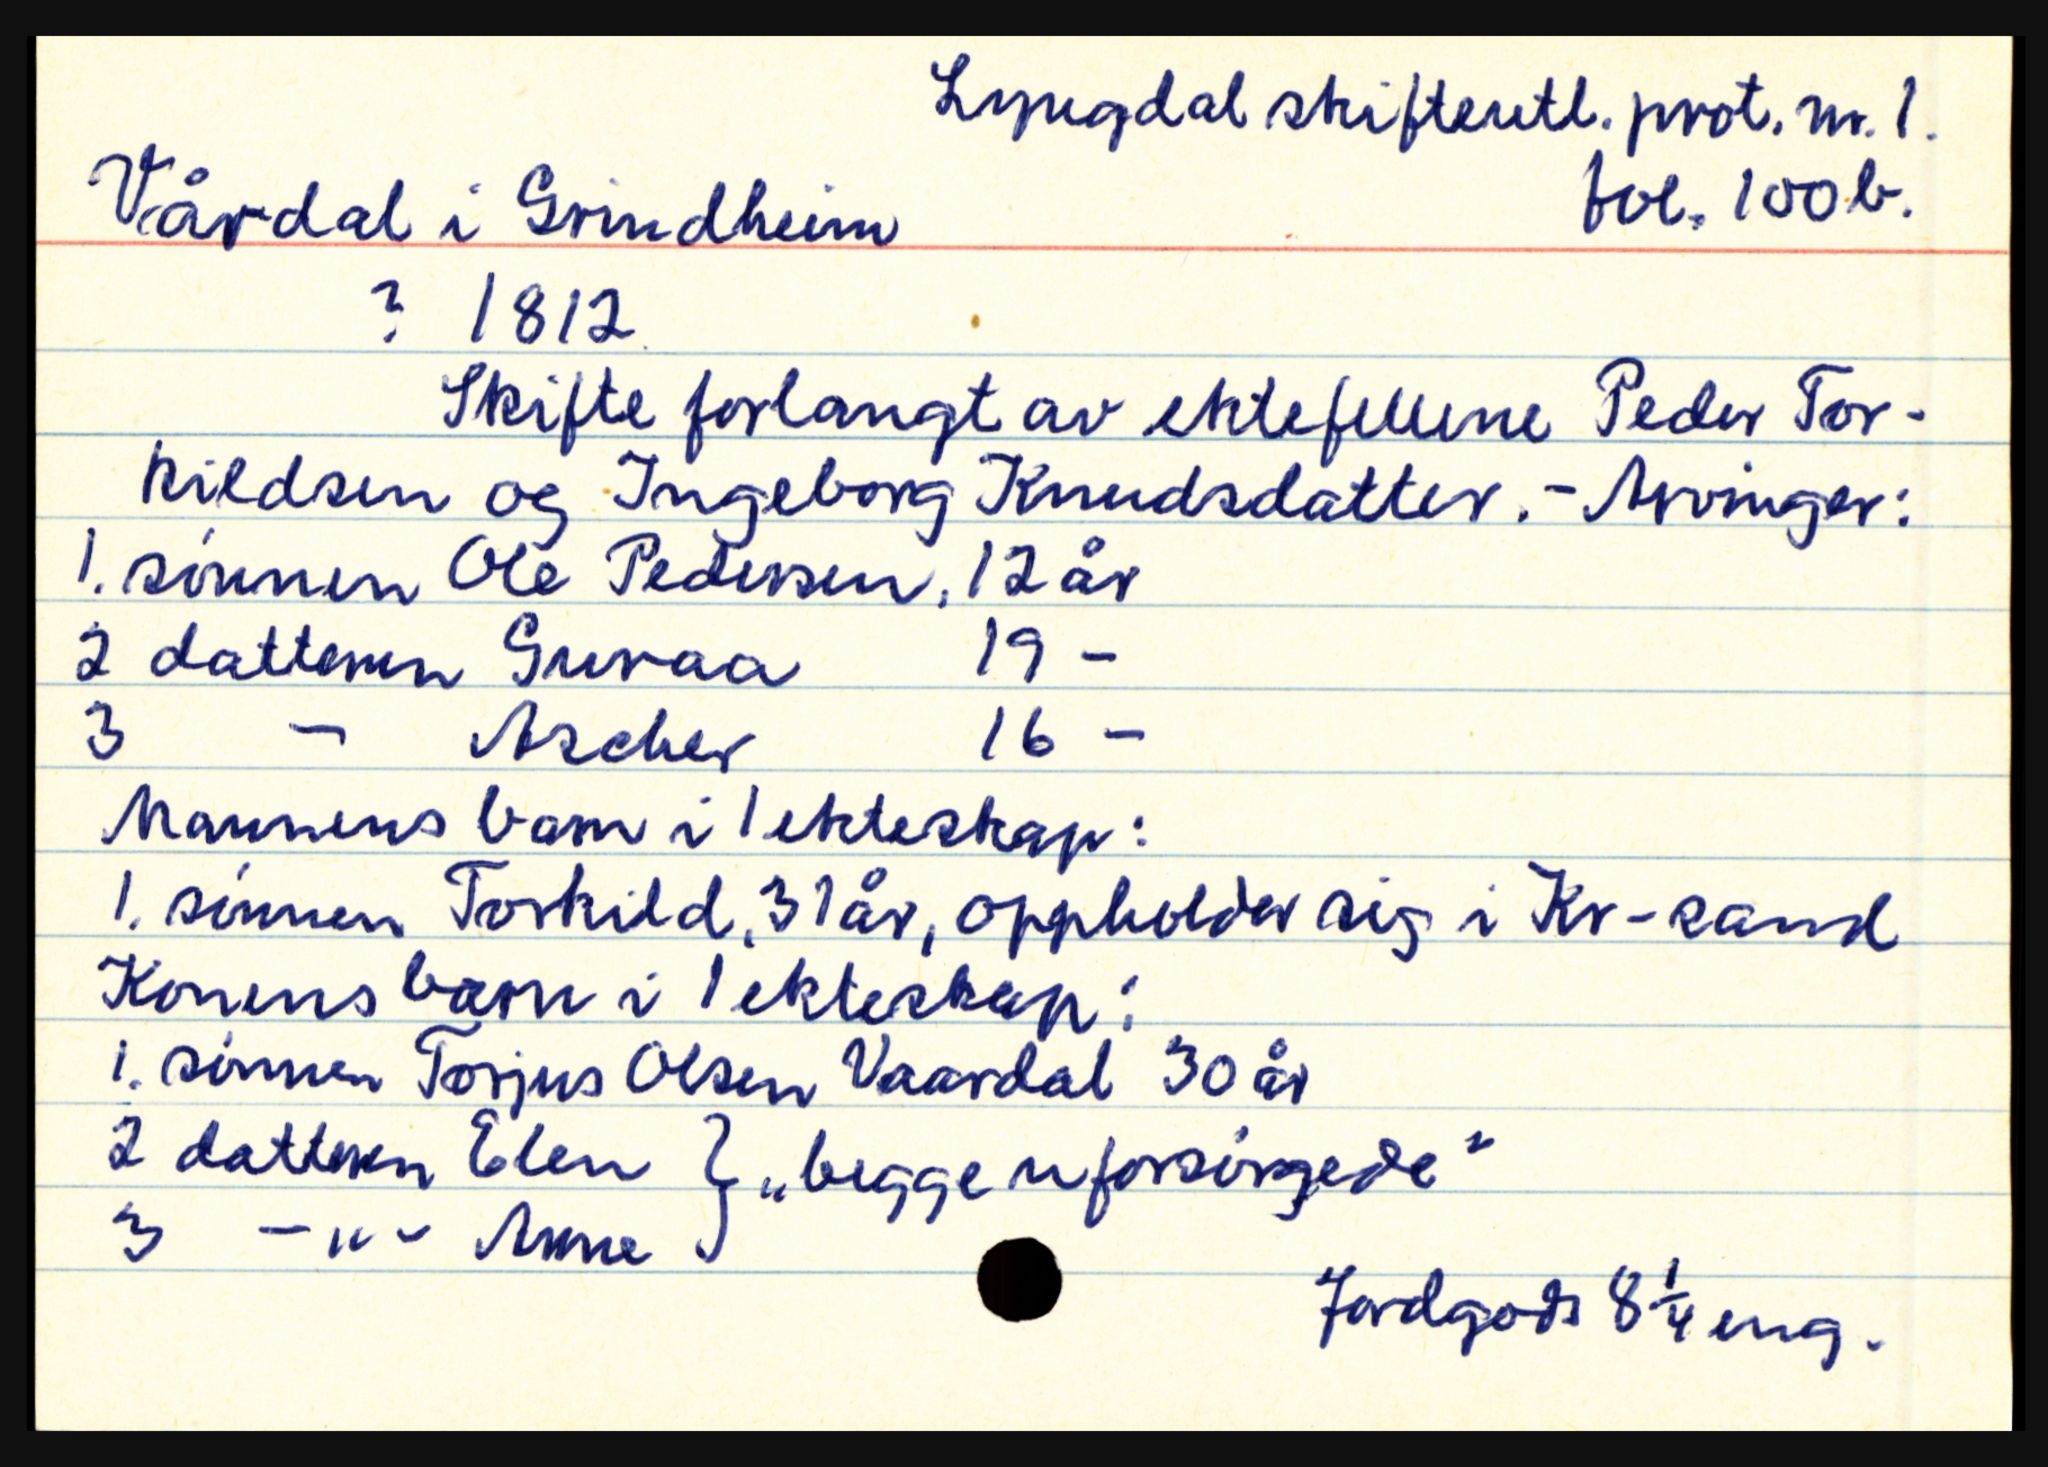 Lyngdal skifteutl. prot. nr. 1.
Vårdal i Grindheim fol. 100b.
? 1812
Skifte forlangt av ektefellene Peder Tor-
kildsen og Ingeborg Knudsdatter. - Arvinger:
1. sønnen Ole Pedersen, 12 år
2 datteren Guraa 19 -
3 - Ascher 16 -
Mannens barn i 1 ekteskap:
1. sønnen Torkild, 31 år, oppholder sig i Kr-sand
Konens barn i 1 ekteskap:
1. sønnen Torjus Olsen Vaardal 30 år
2 datteren Elen } „begge uforsørgede"
3 -"- Anne }
Jordgods 8 1/4 eng.